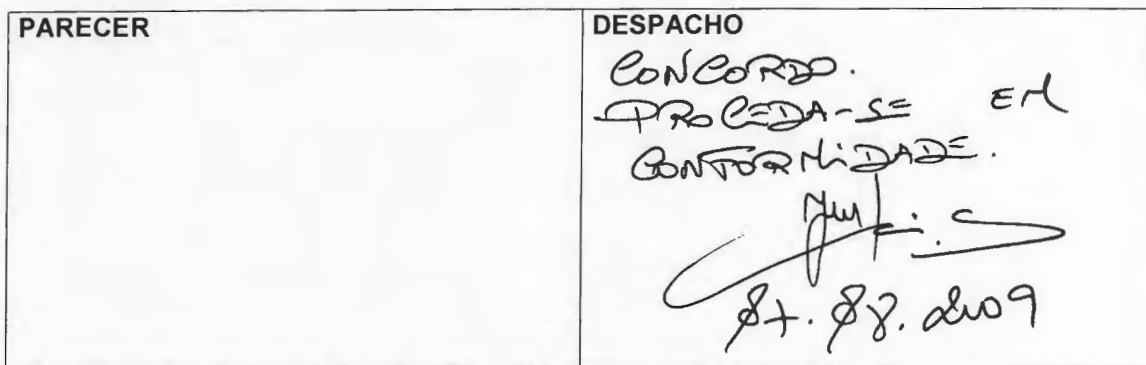 PARECER
DESPACHO
CONCORDO.
PROCEDA-SE EM
CONFORMIDADE.